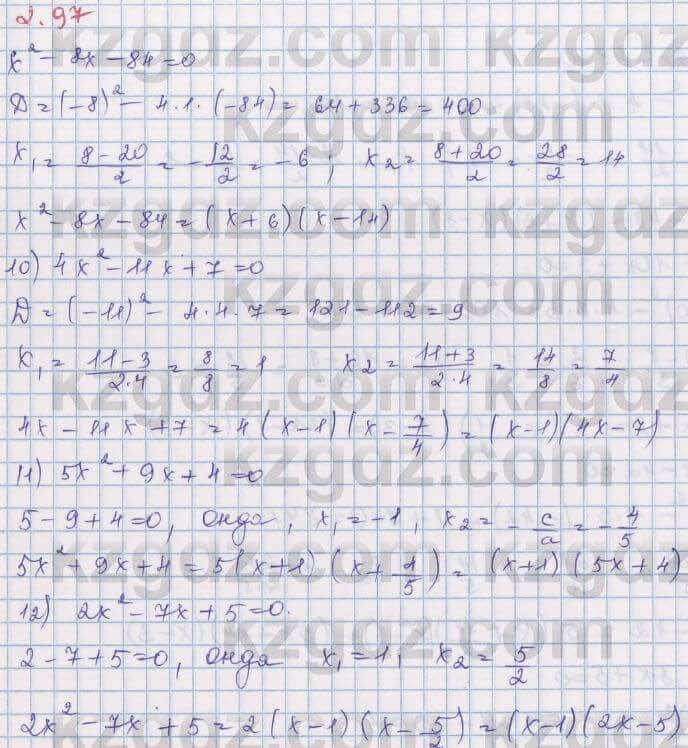 2.97
x² - 8x - 84 = 0
D = (-8)² - 4·1·(-84) = 64 + 336 = 400
x₁ = (8-20)/2 = -12/2 = -6; x₂ = (8+20)/2 = 28/2 = 14
x² - 8x - 84 = (x+6)(x-14)
10) 4x² - 11x + 7 = 0
D = (-11)² - 4·4·7 = 121 - 112 = 9
x₁ = (11-3)/(2·4) = 8/8 = 1 x₂ = (11+3)/(2·4) = 14/8 = 7/4
4x - 11x + 7 = 4(x-1)(x - 7/4) = (x-1)(4x-7)
11) 5x² + 9x + 4 = 0
5 - 9 + 4 = 0, онда, x₁ = -1, x₂ = -c/a = -4/5
5x² + 9x + 4 = 5(x+1)(x + 1/5) = (x+1)(5x+4)
12) 2x² - 7x + 5 = 0.
2 - 7 + 5 = 0, онда x₁ = 1, x₂ = 5/2
2x² - 7x + 5 = 2(x-1)(x - 5/2) = (x-1)(2x-5)
kzgdz.com